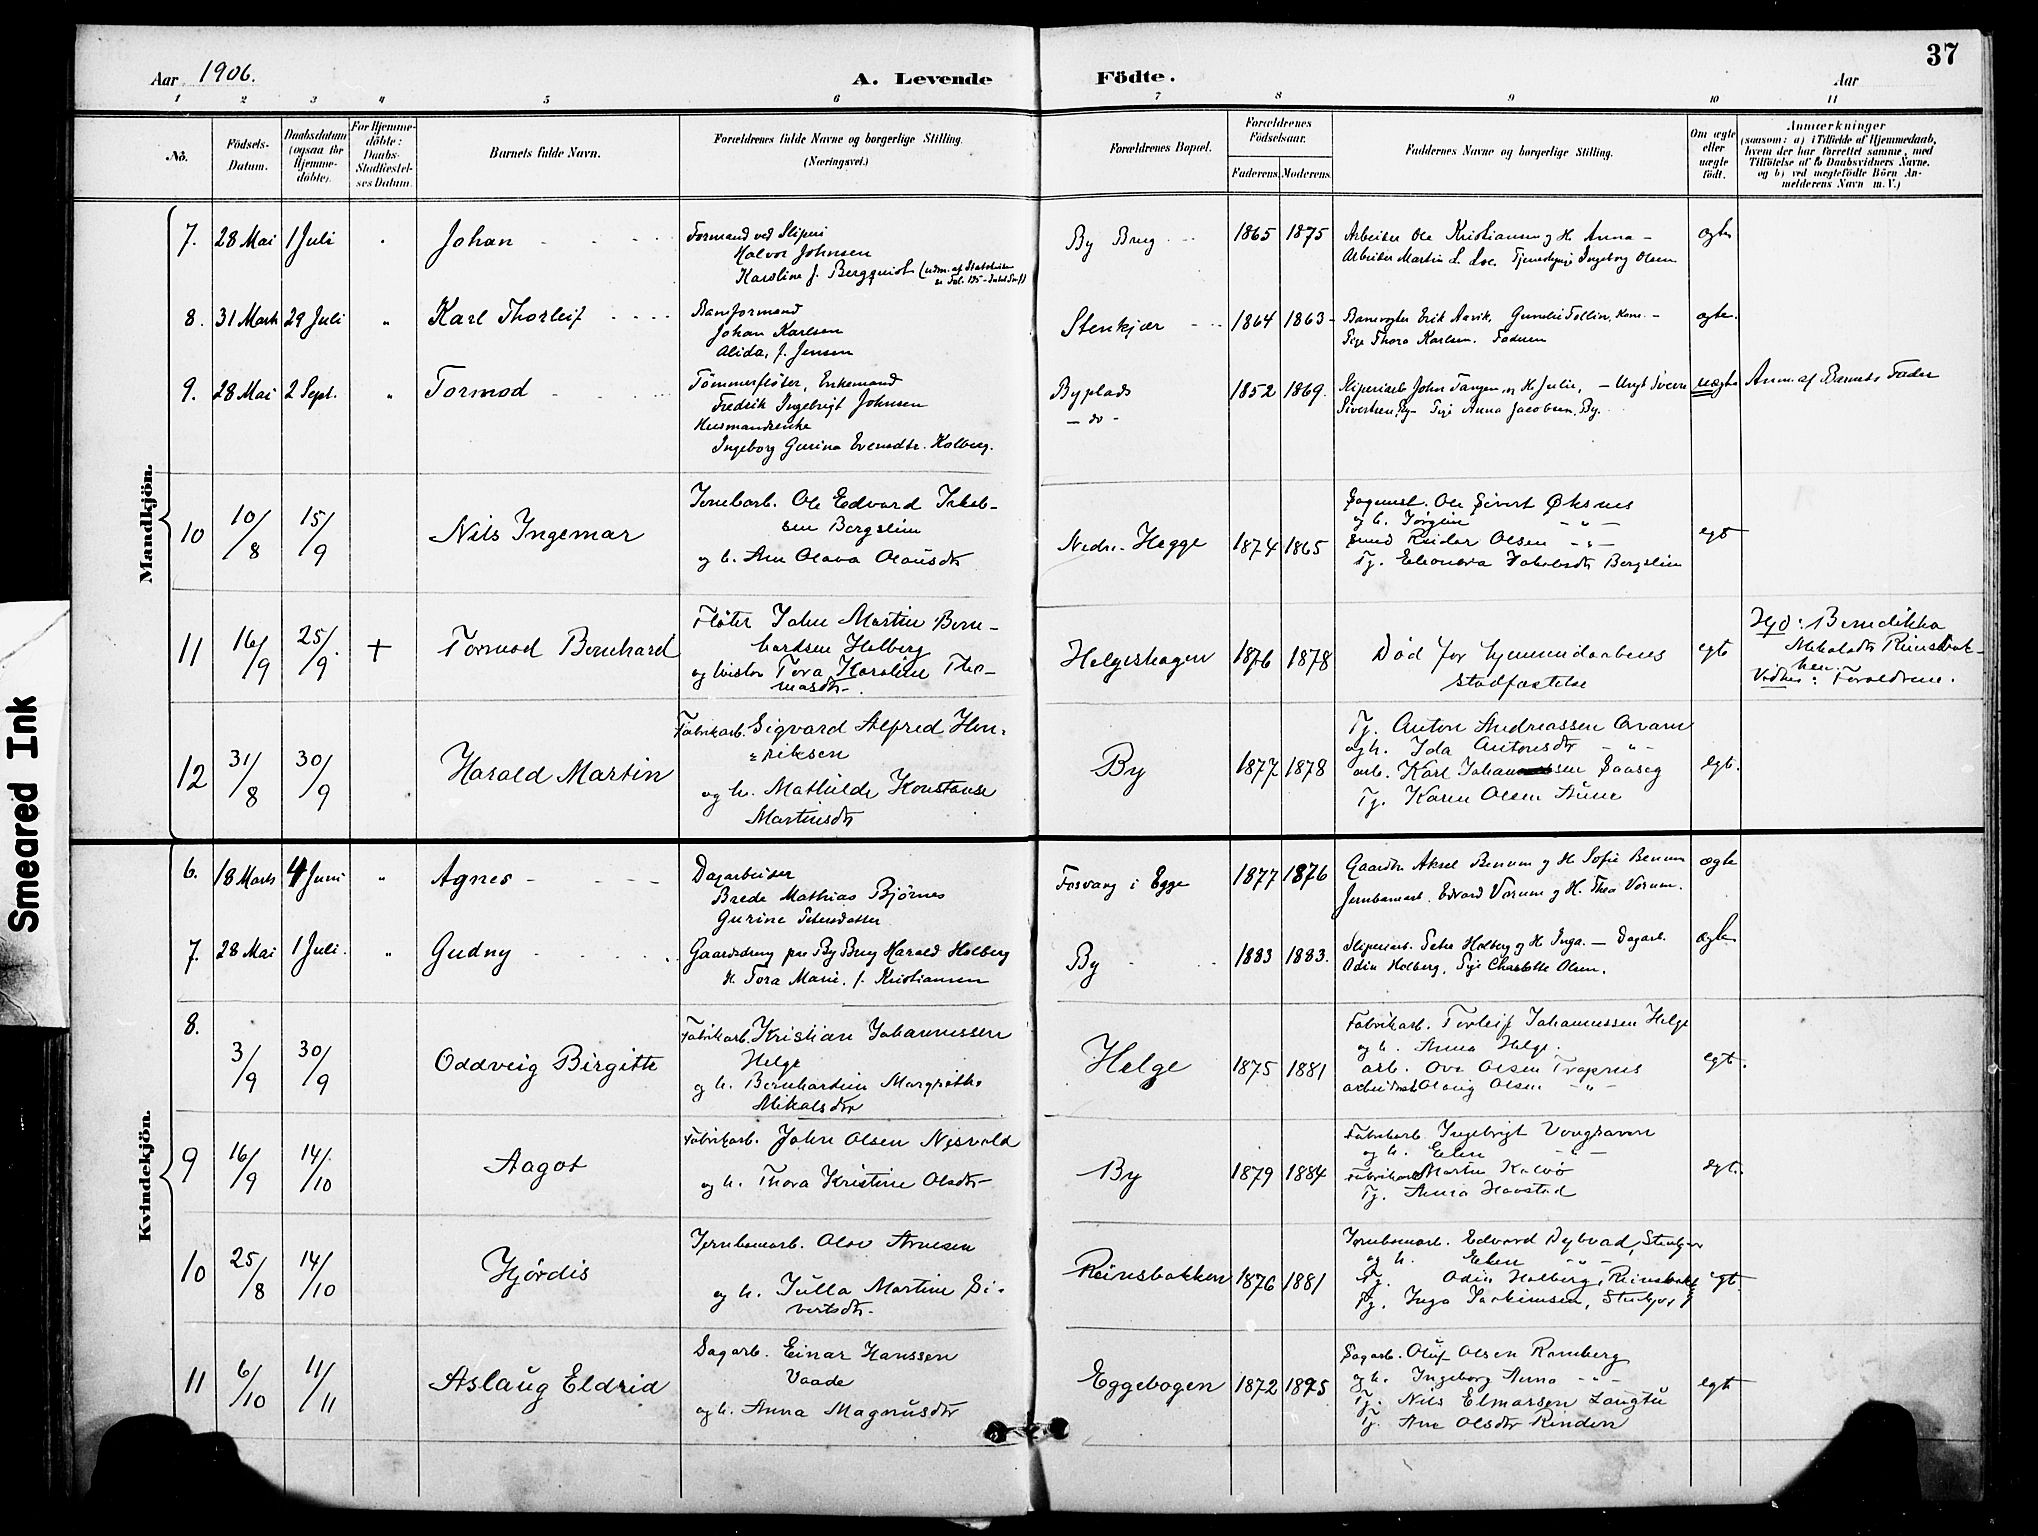 37
Aar 1906.
A. Levende Födte.
Aar
1 2 3 4 5 6 7 8 9 10 11
No.
Födsels-Datum.
Daabsdatum (ogsaa for Hjemme-döbte).
For Hjemme-döbte: Daabs-Stadfæstel-ses Datum.
Barnets fulde Navn.
Forældrenes fulde Navne og borgerlige Stilling.
(Næringsvei.)
Forældrenes Bopæl.
Forældrenes Födselsaar.
Faderens. Moderens.
Faddernes Navne og borgerlige Stilling.
Om ægte eller uægte födt.
Anmærkninger
(saasom: a) i Tilfælde af Hjemmedaab,
hvem der har forrettet samme, med
Tilföielse af to Daabsvidners Navne.
og b) ved uægtefödte Börn An-
melderens Navn m. V.)
Mandkjön.
7. 28 Mai 1 Juli Johan
Formand ved Sliperi
Halvor Johnsen
Karoline J. Bergquist
By Brug 1865 1875
Arbeider Ole Kristiansen og H. Anna –
Arbeider Martin L. Loe. Tjenestepige Ingeborg Olsen
ægte
8. 31 Marts 29 Juli " Karl Thorleif
Baneformand
Johan Karlsen
Alida, f. Jensen
Stenkjær 1864 1863
Banevogter Erik Aavik. Gunelie Follin, Kone. –
Pige Thora Karlsen. Faderen
ægte.
9. 28 Mai 2 Sept. " Tormod
Tømmerfløter, Enkemand
Fredrik Ingebrigt Johnsen
Husmandsenke
Ingeborg Gurina Evensdtr. Holberg.
Byplads
– do –
1852 1869.
Sliperiarb. John Tangen og H. Julie, – Ungk. Sverre
Sivertsen, By – Pige Anna Jacobsen, By.
uægte
Anm. af Barnets Fader
10 10/8 15/9 Nils Ingemar
Jernbarb. Ole Edvard Jakob-
sen Bergslim
og h. Ane Olava Olausdtr
Nedre Hegge 1874 1865
Sagmest. Ole Sivert Øksnes
og h. Jørgine – " –
Smed Reidar Olsen – " –
Tj. Eleonora Jakobsdtr Bergslim
egt
11 16/9 25/9. + Tormod Bernhard
Fløter John Martin Bern-
hardsen Holberg
og hustru Tora Karoline Tho-
masdtr.
Helgeshagen 1876 1878
Død før hjemmedaabens
stadfæstelse
egt
Hjd: Benedikka
Nikolasdtr Reinsbak-
ken
Vidner: Forældrene.
12 31/8 30/9 Harald Martin
Fabrikarb. Sigvard Alfred Hen-
riksen
og h. Mathilde Konstanse
Martinsdtr
By 1877 1878
Tj. Anton Andreassen Qvam
og h. Ida Antonsdtr – " –
arb. Karl Johansen Saaseg
Tj. Karen Olsen Aune
egt.
Kvindekjön.
6. 18 Marts 4 Juni " Agnes
Dagarbeider
Brede Mathias Bjørnes
Gurine Petersdatter
Fosvang i Egge 1877 1876
Gaardbr. Aksel Benum og H. Sofie Benum
Jernbanearb. Edvard Vorum og H. Thea Vorum.
ægte
7. 28 Mai 1 Juli. " Gudny
Gaardsdreng paa By Brug Harald Holberg
H. Tora Marie. f. Kristiansen
By 1883 1883.
Sliperiarb. Peter Holberg og H. Inga. – Dagarb.
Odin Holberg, Pige Charlotte Olsen.
ægte
8. 3/9 30/9 Oddveig Birgitte
Fabrikarb. Kristian Johannessen
Helge
og h. Bernhardine Margrethe
Mikalsdtr
Helge 1875 1881
Fabrikarb. Torleif Johannessen Helge
og h. Anna Helge.
arb. Ove Olsen Trapnes
arbeiderske Olaug Olsen – " –
egt.
9 16/9 14/10 Aagot
Fabrikarb. John Olsen Nysvold
og h. Thora Kristine Olsdtr
By 1879 1884
Fabrikarb. Ingebrigt Vongraven
og h. Elen – " –
Fabrikarb. Martin Kalvø
Tj. Anna Havstad
egt.
10 25/8 14/10 Hjørdis
Jernbanearb. Olav Arnesen
og h. Julla Martine Si-
vertsdtr.
Reinsbakken 1876 1881
Jernbanearb. Edvard Dybvad, Stenkjær
og h. Elen – " –
Tj. Odin Holberg, Reinsbakken
Pg. Inga Joakimsen, Stenkjær
egt.
11 6/10 11/11 Aslaug Eldrid
Sagarb. Einar Hanssen
Vaade
og h. Anna Magnusdtr
Eggebogen 1872 1875
Sagarb. Oluf Olsen Ramberg
og h. Ingeborg Anna – " –
Tj. Nils Elmarsen Langtu
Tj. Ane Olsdtr Rinden
egt
Smeared Ink